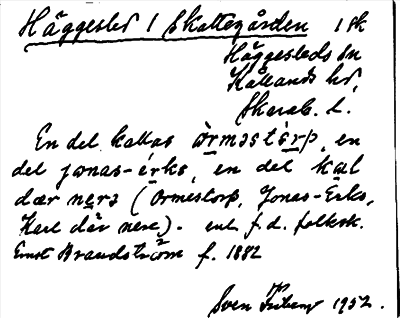 Häggesled 1 Skattegården 1 sk
Häggesleds sn
Kållands hd,
Skarab. l.
En del kallas òrməstórp, en
del jonas-érks, en del kal
dær nerə (Ormestorp, Jonas-Erks,
Karl där nere). enl. f.d. folksk.
Ernst Brandström f. 1882
Sven Friberg 1952.